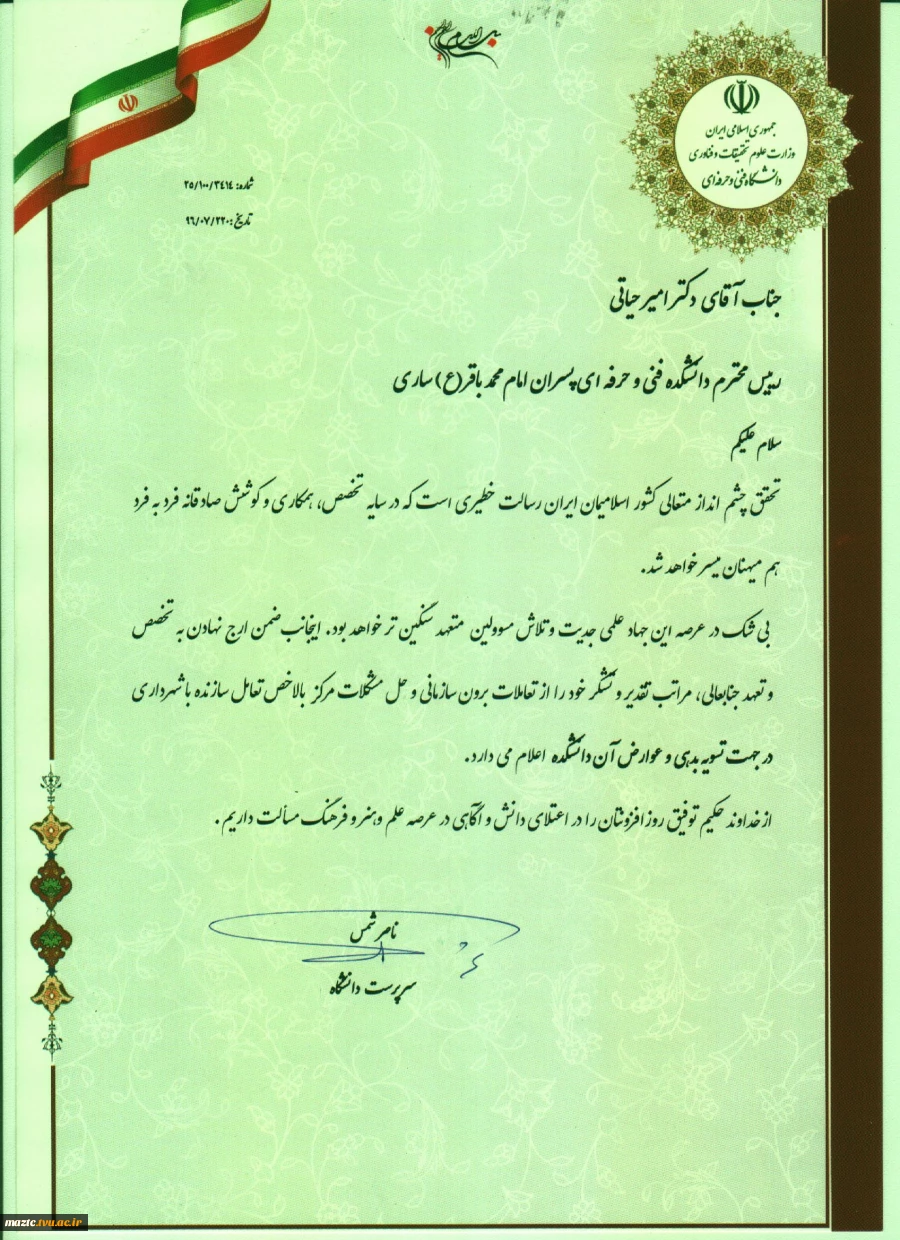 بسم الله الرحمن الرحیم
جمهوری اسلامی ایران
وزارت علوم تحقیقات و فناوری
دانشگاه فنی و حرفه ای
شماره: ۲۵/۱۰۰/۳۴۱۴
تاریخ: ۹۶/۰۷/۲۲۰
جناب آقای دکتر امیر حیاتی
رییس محترم دانشکده فنی و حرفه ای پسران امام محمد باقر(ع) ساری
سلام علیکم
تحقق چشم انداز متعالی کشور اسلامیمان ایران رسالت خطیری است که در سایه تخصص، همکاری و کوشش صادقانه فرد به فرد
هم میهنان میسر خواهد شد.
بی شک در عرصه این جهاد علمی جدیت و تلاش مسوولین متعهد سنگین تر خواهد بود. اینجانب ضمن ارج نهادن به تخصص
و تعهد جنابعالی، مراتب تقدیر و تشکر خود را از تعاملات برون سازمانی و حل مشکلات مرکز بالاخص تعامل سازنده با شهرداری
در جهت تسویه بدهی و عوارض آن دانشکده اعلام می دارد.
از خداوند حکیم توفیق روز افزونتان را در اعتلای دانش و آگاهی در عرصه علم و هنر و فرهنگ مسألت داریم.
ناصر شمس
سرپرست دانشگاه
maztc.tvu.ac.ir